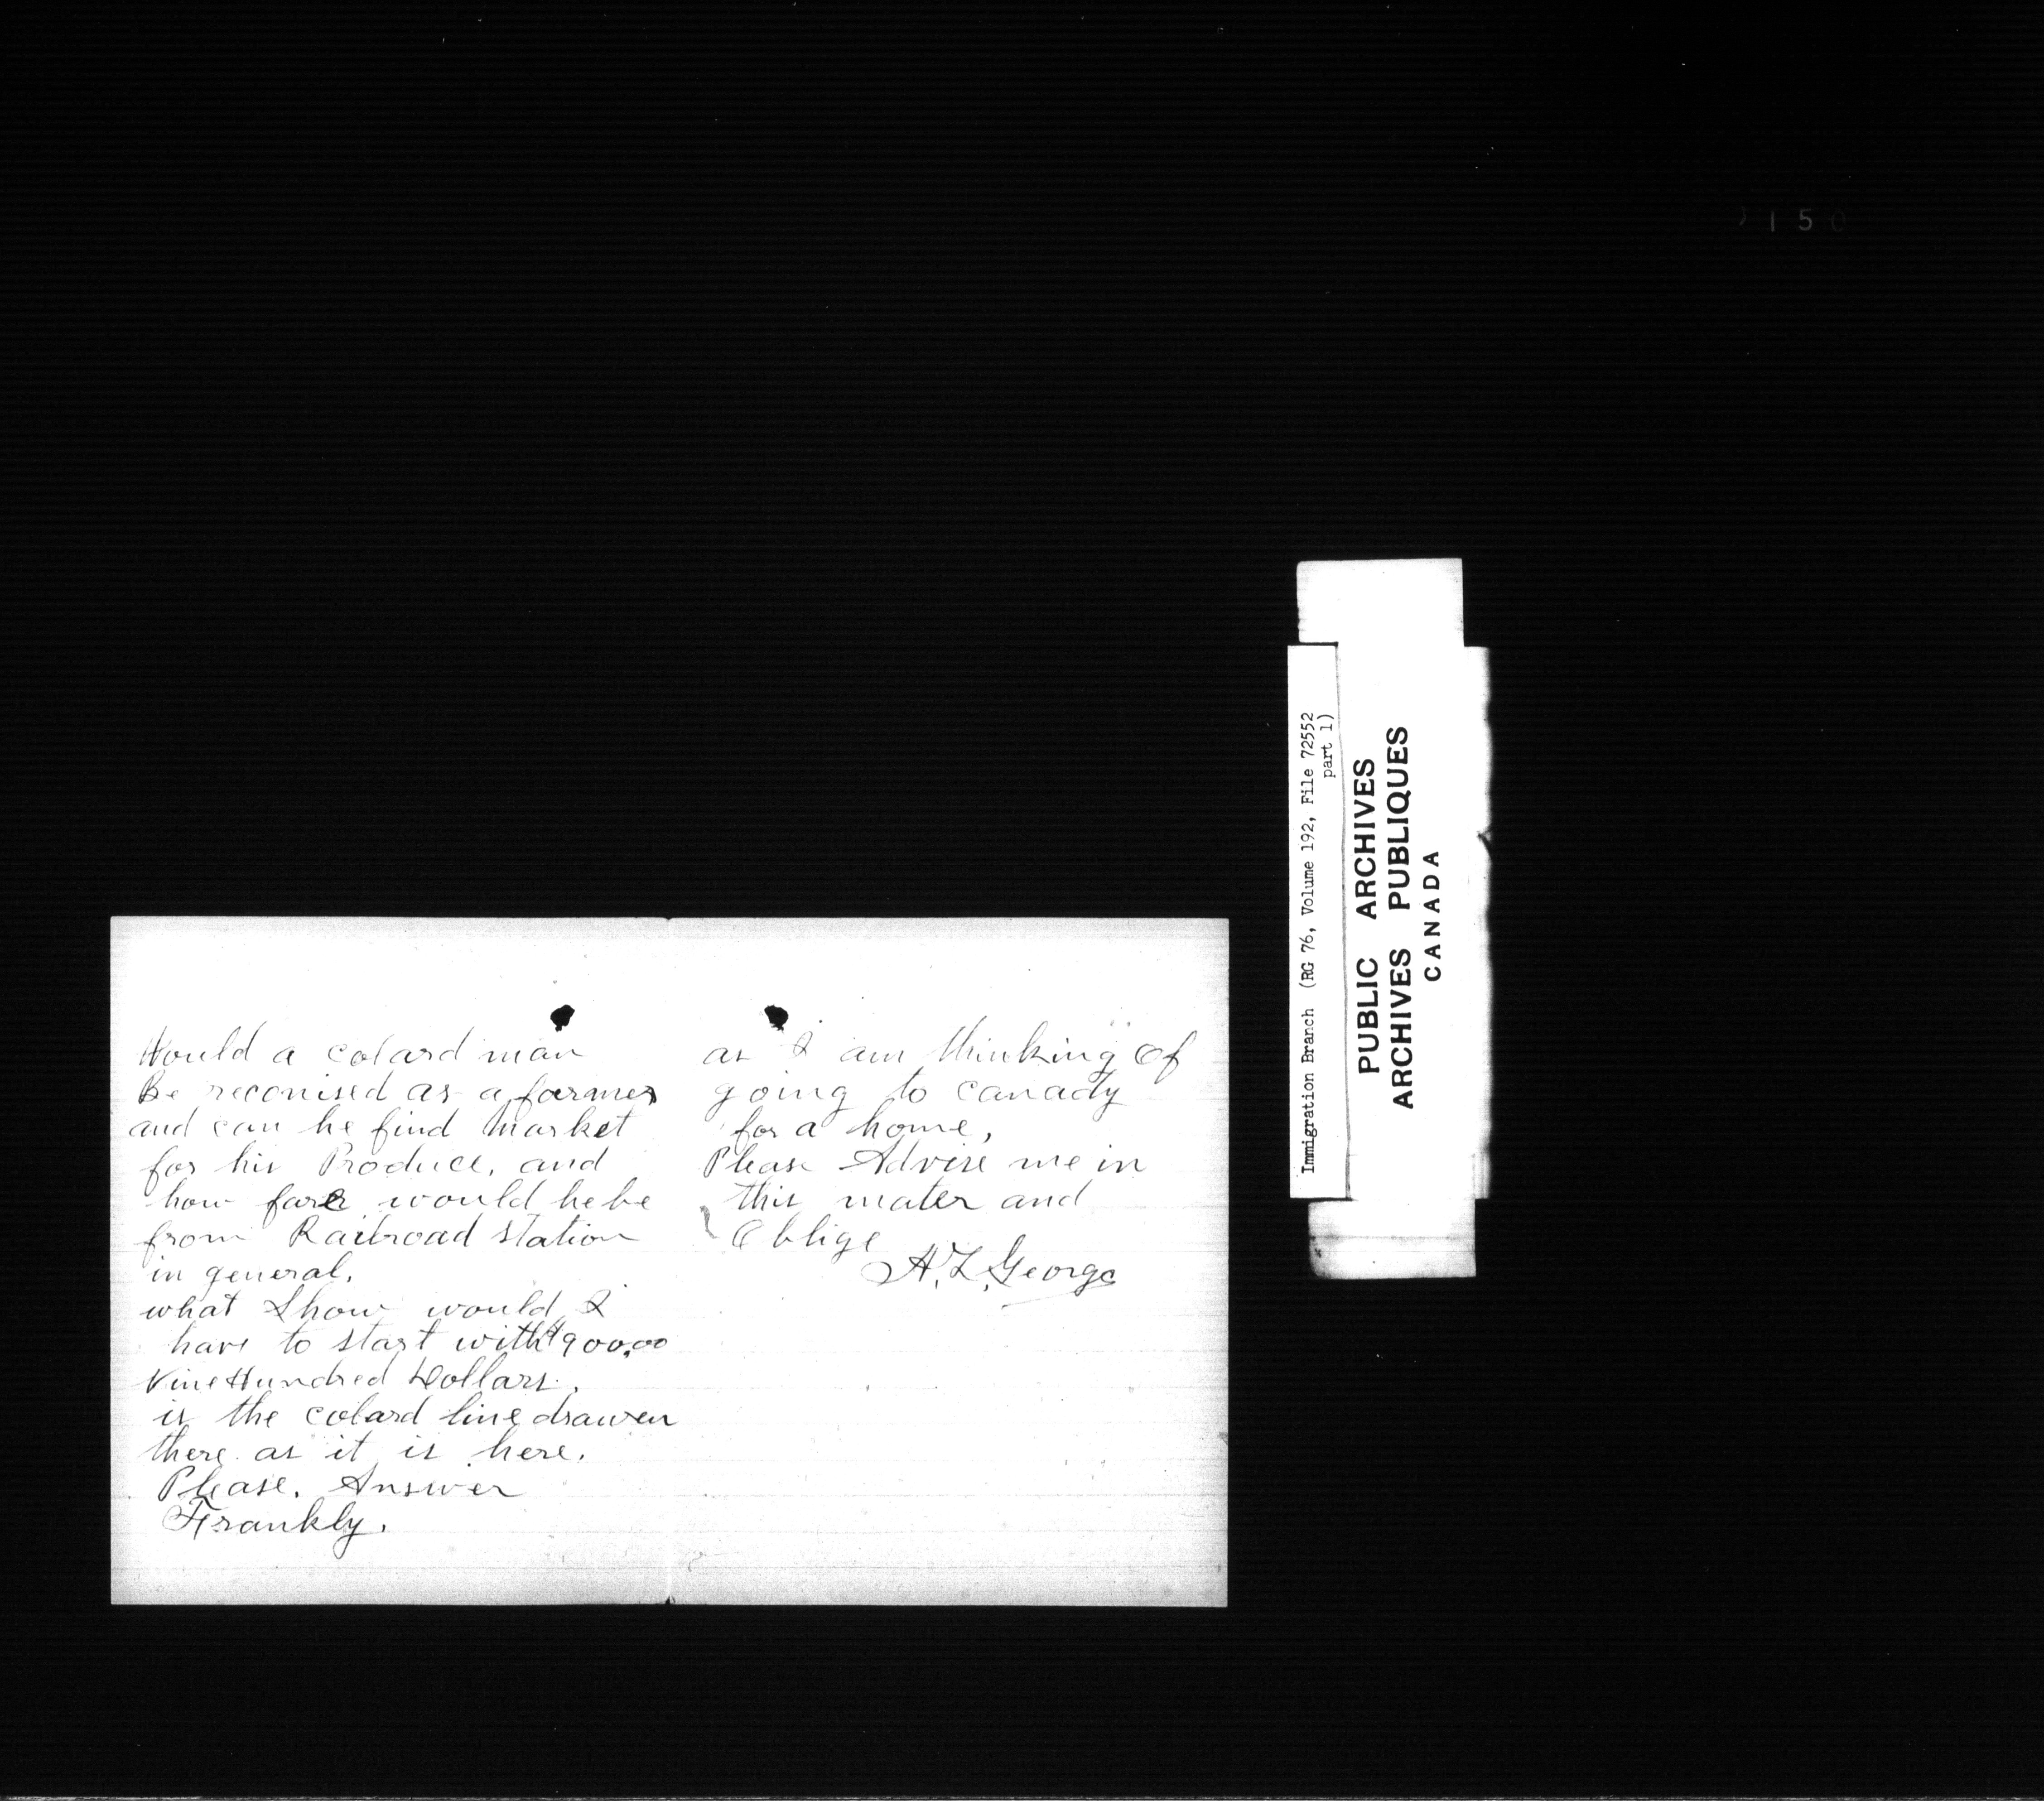 Would a colard man
Be reconised as a farmer
and can he find Market
for his Produce, and
how fare would he be
from Railroad station
in general.
what Show would I
have to start with $900.00
Nine Hundred Dollars.
is the colard line drawen
there as it is here.
Please. Answer
Frankly.
as I am thinking Of
going to canady
for a home,
Please Advise me in
this mater and
Oblige
A. L. George
Immigration Branch (RG 76, Volume 192, File 72552
part 1)
PUBLIC ARCHIVES
ARCHIVES PUBLIQUES
CANADA